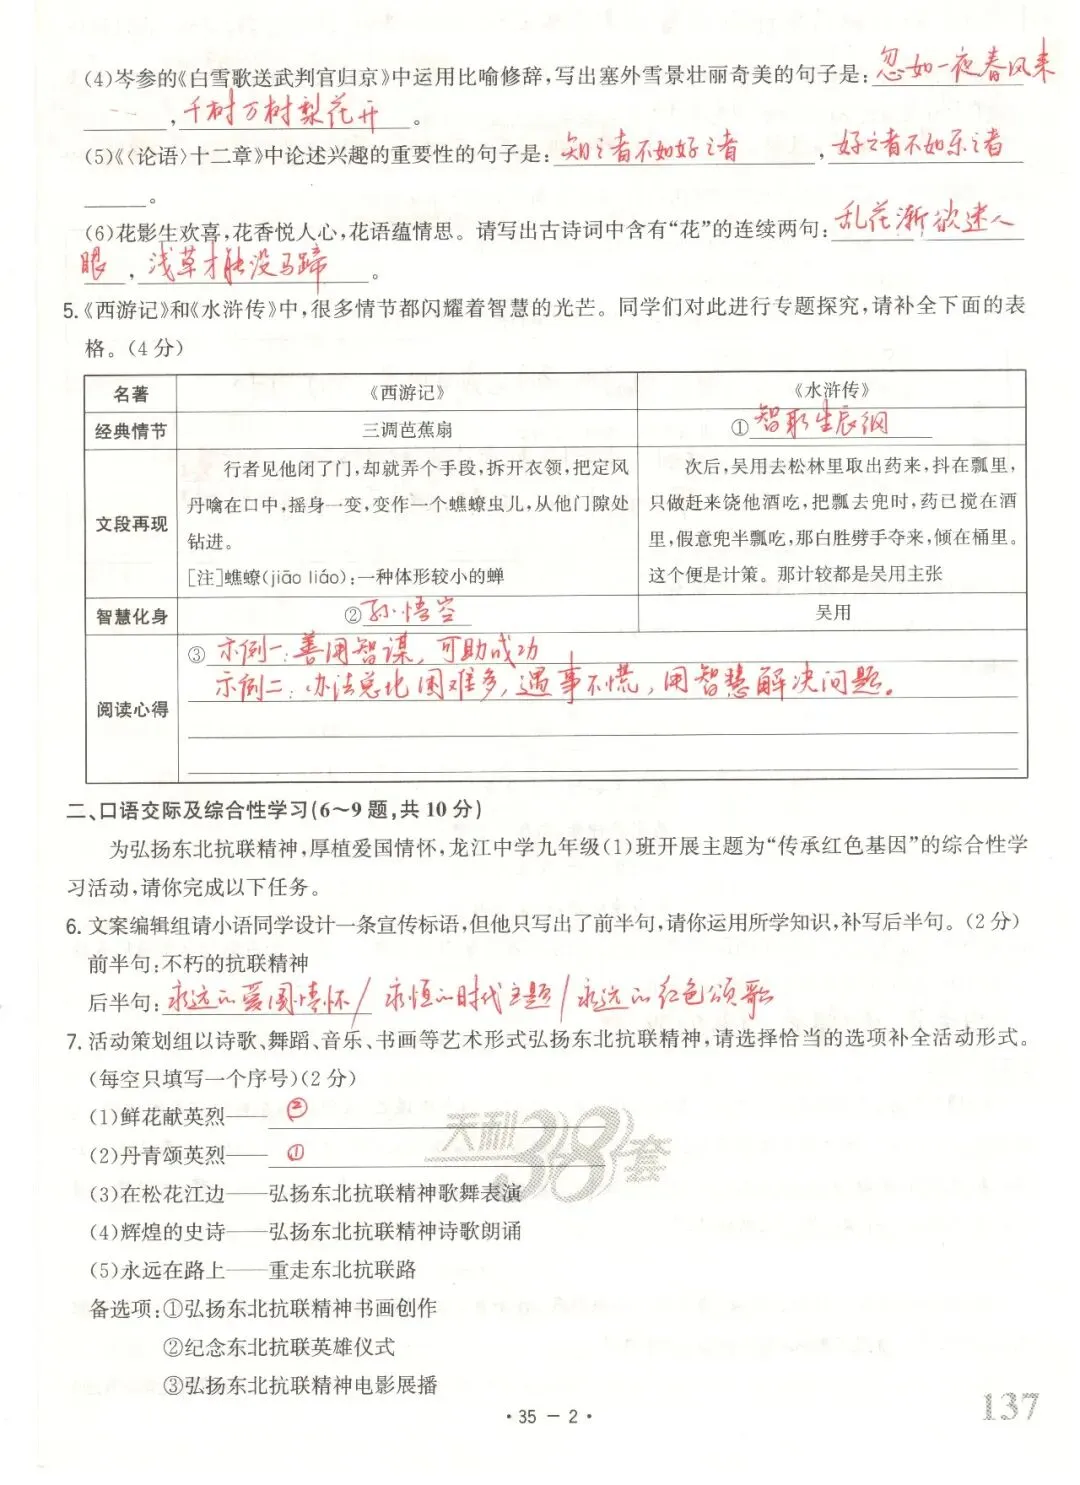 (4)岑参的《白雪歌送武判官归京》中运用比喻修辞,写出塞外雪景壮丽奇美的句子是:忽如一夜春风来
,千树万树梨花开。
(5)《〈论语〉十二章》中论述兴趣的重要性的句子是:知之者不如好之者,好之者不如乐之者
。
(6)花影生欢喜,花香悦人心,花语蕴情思。请写出古诗词中含有“花”的连续两句:乱花渐欲迷人
眼,浅草才能没马蹄。
5.《西游记》和《水浒传》中,很多情节都闪耀着智慧的光芒。同学们对此进行专题探究,请补全下面的表
格。(4分)
名著 《西游记》 《水浒传》
经典情节 三调芭蕉扇 ①智取生辰纲
文段再现
行者见他闭了门,却就弄个手段,拆开衣领,把定风
丹噙在口中,摇身一变,变作一个蟭蟟虫儿,从他门隙处
钻进。
[注]蟭蟟(jiāo liáo):一种体形较小的蝉
次后,吴用去松林里取出药来,抖在瓢里,
只做赶来饶他酒吃,把瓢去兜时,药已搅在酒
里,假意兜半瓢吃,那白胜劈手夺来,倾在桶里。
这个便是计策。那计较都是吴用主张
智慧化身 ②孙悟空 吴用
阅读心得
③示例一:善用智谋,可助成功
示例二:办法总比困难多,遇事不慌,用智慧解决问题。
二、口语交际及综合性学习(6～9题,共10分)
为弘扬东北抗联精神,厚植爱国情怀,龙江中学九年级(1)班开展主题为“传承红色基因”的综合性学
习活动,请你完成以下任务。
6.文案编辑组请小语同学设计一条宣传标语,但他只写出了前半句,请你运用所学知识,补写后半句。(2分)
前半句:不朽的抗联精神
后半句:永远的爱国情怀/永恒的时代主题/永远的红色颂歌
7.活动策划组以诗歌、舞蹈、音乐、书画等艺术形式弘扬东北抗联精神,请选择恰当的选项补全活动形式。
(每空只填写一个序号)(2分)
(1)鲜花献英烈——②
(2)丹青颂英烈——①
(3)在松花江边——弘扬东北抗联精神歌舞表演
(4)辉煌的史诗——弘扬东北抗联精神诗歌朗诵
(5)永远在路上——重走东北抗联路
备选项:①弘扬东北抗联精神书画创作
②纪念东北抗联英雄仪式
③弘扬东北抗联精神电影展播
天利38套
·35－2·
137